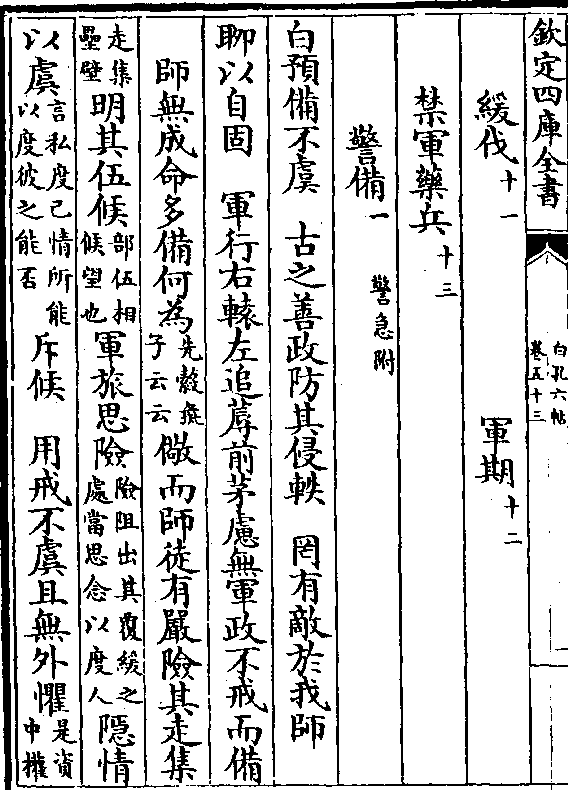 欽定四庫全書
白孔六帖
卷五十三
緩伐十一 軍期十二
禁軍藥兵十三
警備一 警急附
白預備不虞 古之善政防其侵軼 罔有敵於我師
聊以自固 軍行右轅左追蓐前茅慮無軍政不戒而備
師無成命多備何為先縠㷟子云云儆而師徒有嚴險其走集
走集壘壁明其伍候部伍相候望也軍旅思險險阻出其覆緩之處當思念以度人隱情
以虞言私度己情所能以度彼之能否 斥候 用戒不虞且無外懼是資中權